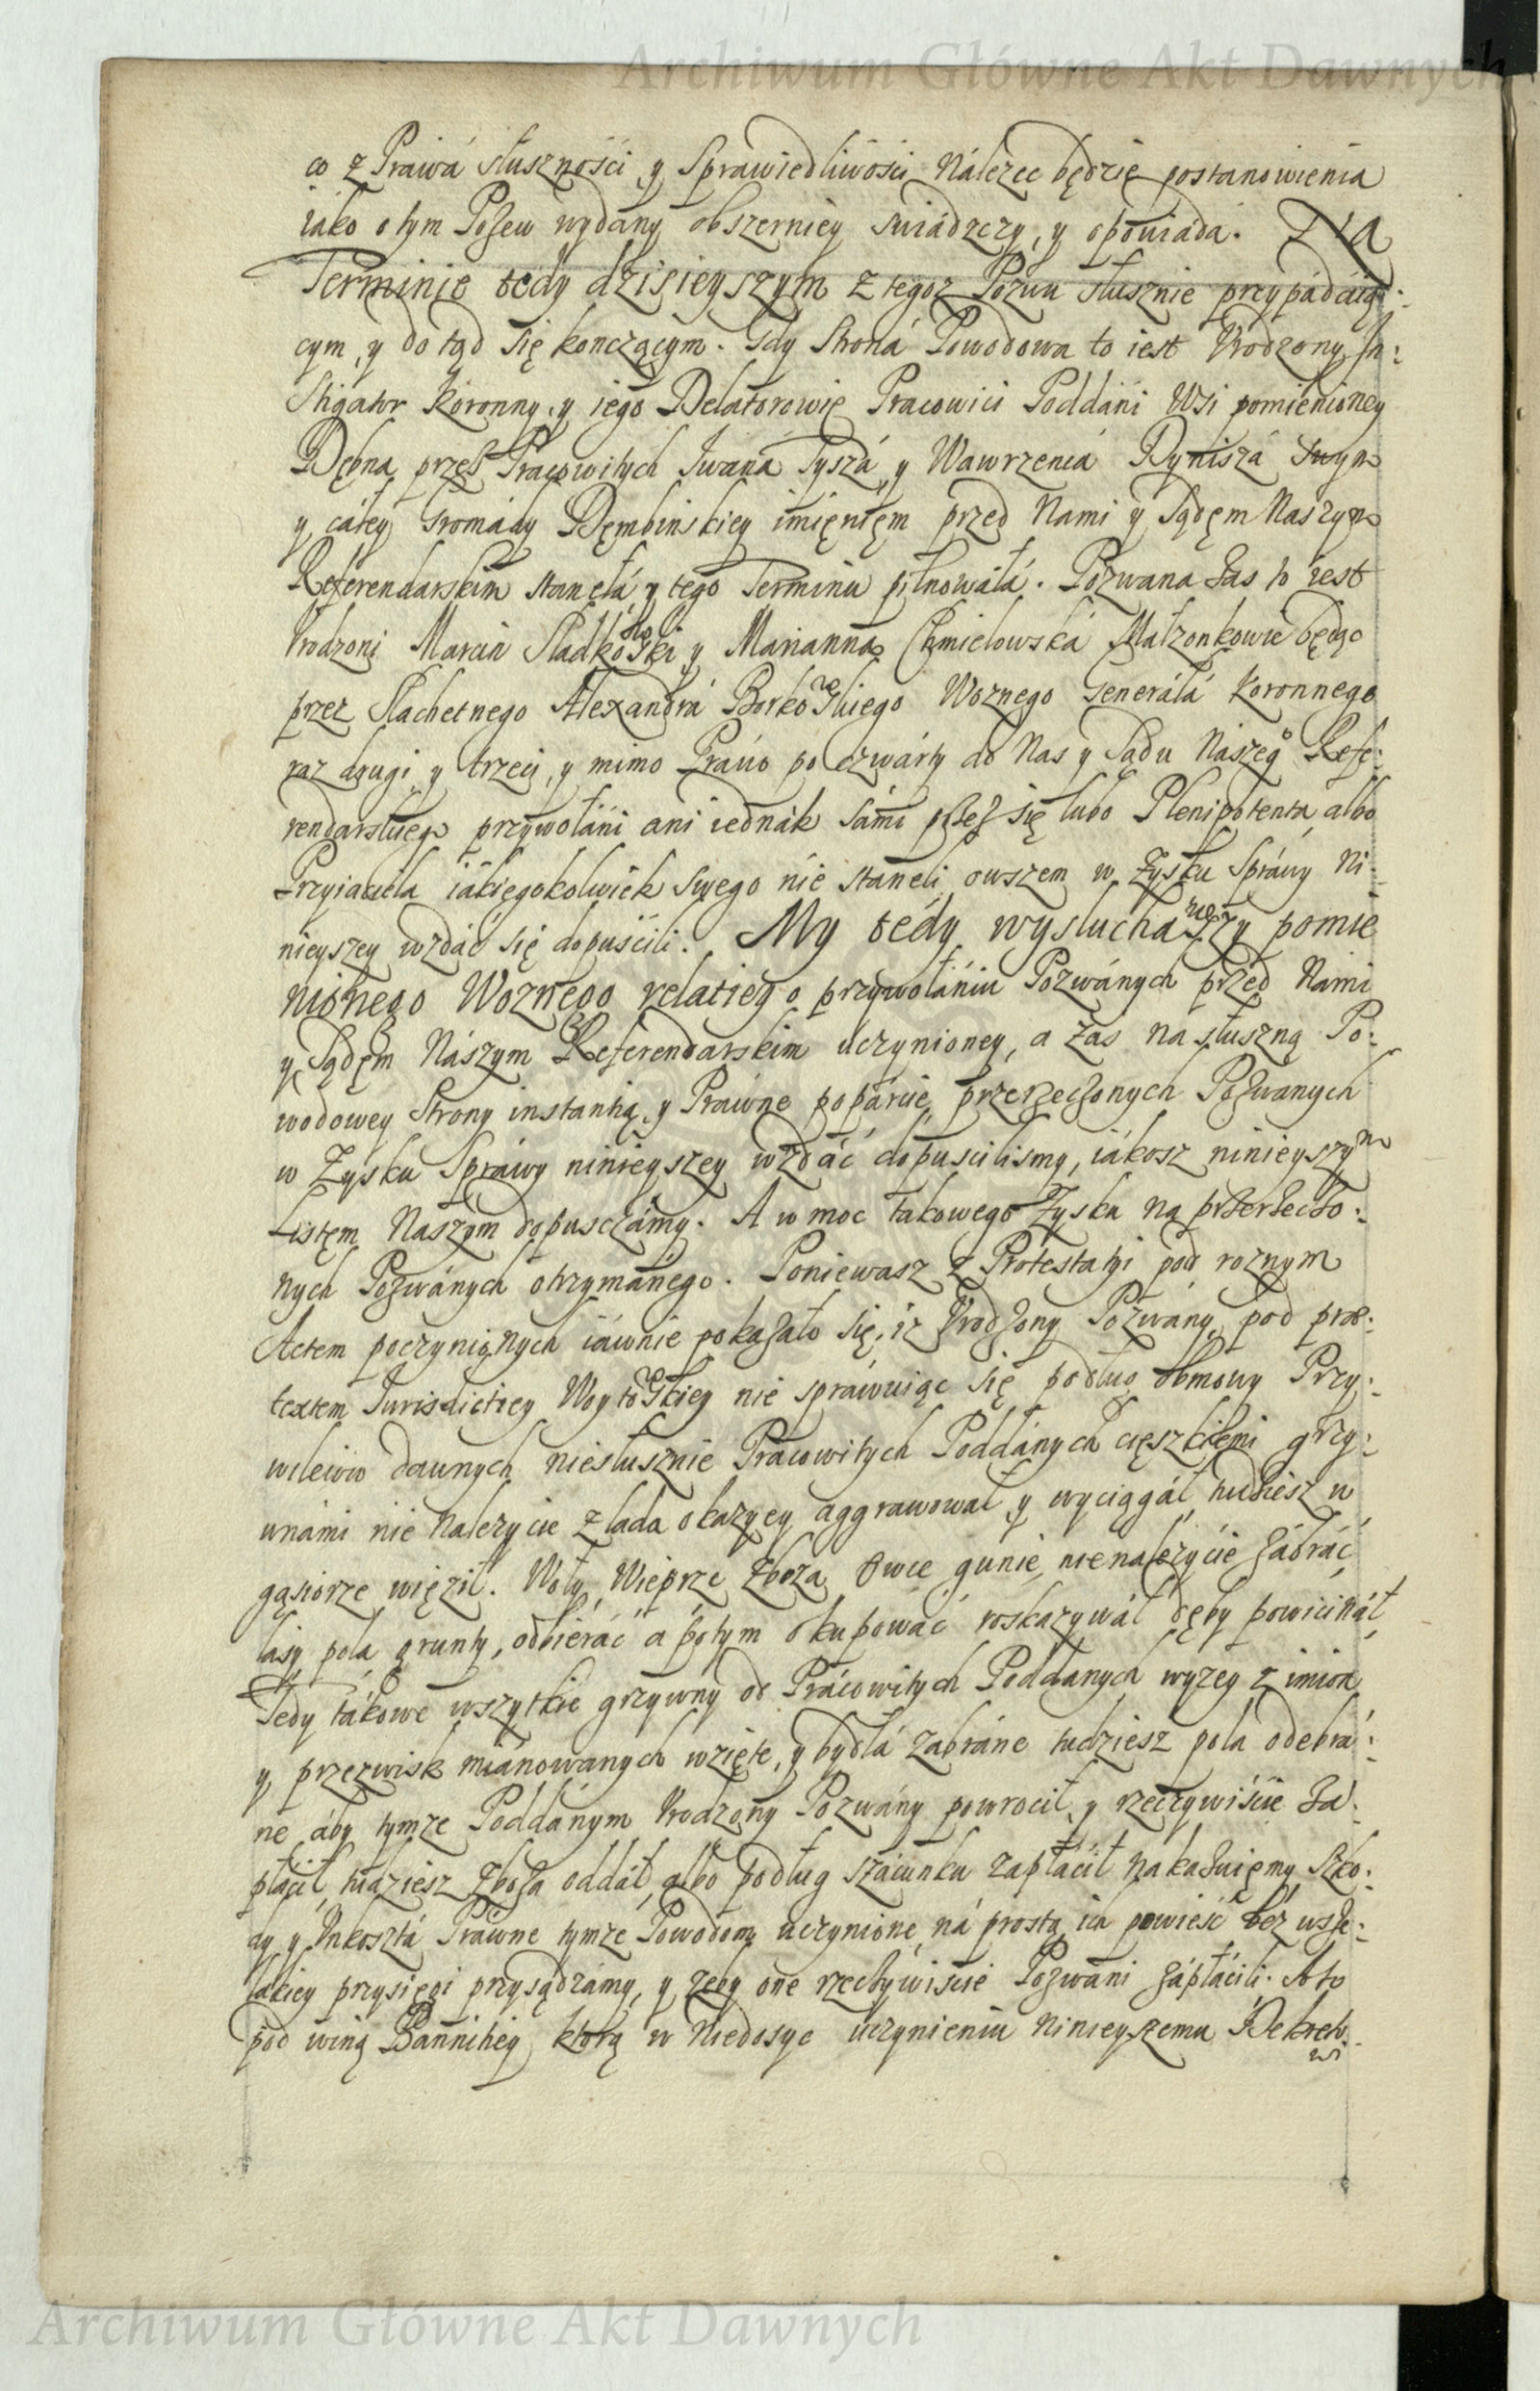 Archiwum Główne Akt Dawnych
co z Prawá słuszności y Sprawiedliwości Náleżec będzie postanowienia
iako o tym Pozew wydany obszerniey swiádzczy, y opowiáda. Na
Terminie tedy dzisieyszym z tegoz Pozwu słusznie przypádáią:
cym, y do tąd się konczącym. Gdy Stroná Powodowa to iest Vrodzony In:
Stigator Koronny, y iego Delatorowie Pracowici Poddáni Wsi pomienioney
Dębna przez Pracowitych Iwaná Tyszá, y Wawrzencá Dyniszá swym
y cáłey Gromády Dęmbinskiey imięnięm przed Nami y Sądęm Naszym
Referendarskim stanęłá, y tego Terminu pilnowáłá. Pozwana zas to iest
Vrodzoni Marcin Sládkowski y Marianna Chmielowská Małżonkowie będąc
przez Slachetnego Alexandrá Borkowskiego Woznego Generałá Koronnego
raz drugi y trzeci, y mimo Práwo po czwárty do Nas y Sądu Nászego Refe:
rendarskiego przywołáni ani iednák sámi przez się lubo Plenipotentá albo
Przyiaciela iákiegokolwiek swego nie stanęli owszem w Zysku Spráwy Ni:
nieyszey wzdáć się dopuścili. My tedy wysłuchawszy pomie
nionego Woznego relatiey o przywołániu Pozwánych przed Nami
y Sądęm Nászym Referendarskim uczynioney, a zas na słuszną Po:
wodowey Strony instantią, y Práwne popárcie przerzeczonych Pozwanych
w Zysku Spráwy ninieyszey wzdáć dopuscilismy, iákosz ninieyszym
Listęm Naszym dopusczámy. A w moc takowego Zysku ná przerzeczo:
nych Pozwánych otrzymánego. Poniewasz z Protestatyi pod roznym
Actem poczynionych iáwnie pokazáło się, iz Vrodzony Pozwány pod præ:
textęm Iurisdictiey Woytowskiey nie spráwuiąc się podług obmowy Przy:
wileiow dawnych niesłusznie Pracowitych Poddánych cięszkiemi grzy:
wnámi nie należycie z láda okazyey aggrawował, y wyciągáł, tudziesz w
gąsiorze więził. Woły, Wieprze Zboza Owce gunie, nienależycie zábráć
lásy, pola, grunty, odbieráć a potym okupowáć roskazywáł dęby powicináł
Tedy tákowe wszytkie grzywny od Prácowitych Poddánych wyzey z imion
y przezwisk mianowanych wzięte, y bydłá zabráne tudziesz pola odebrá:
ne áby tymze Poddánym Vrodzony Pozwány powrocił, y rzeczywiscie Zá:
płácił, tudziesz Zboża oddáł, albo podług száçunku zapłácił nakazuięmy, szko:
dy y Vnkosztá Práwne tymze Powodom uczynione ná prostą ich powieść bez wsze:
lákiey przysięgi przysądzámy, y zeby one rzeczywiscie Pozwáni zápłácili. A to
pod winą Bannitiey, ktorą w Niedosyc uczynieniu Ninieyszemu Dekreto:
wi
Archiwum Główne Akt Dawnych